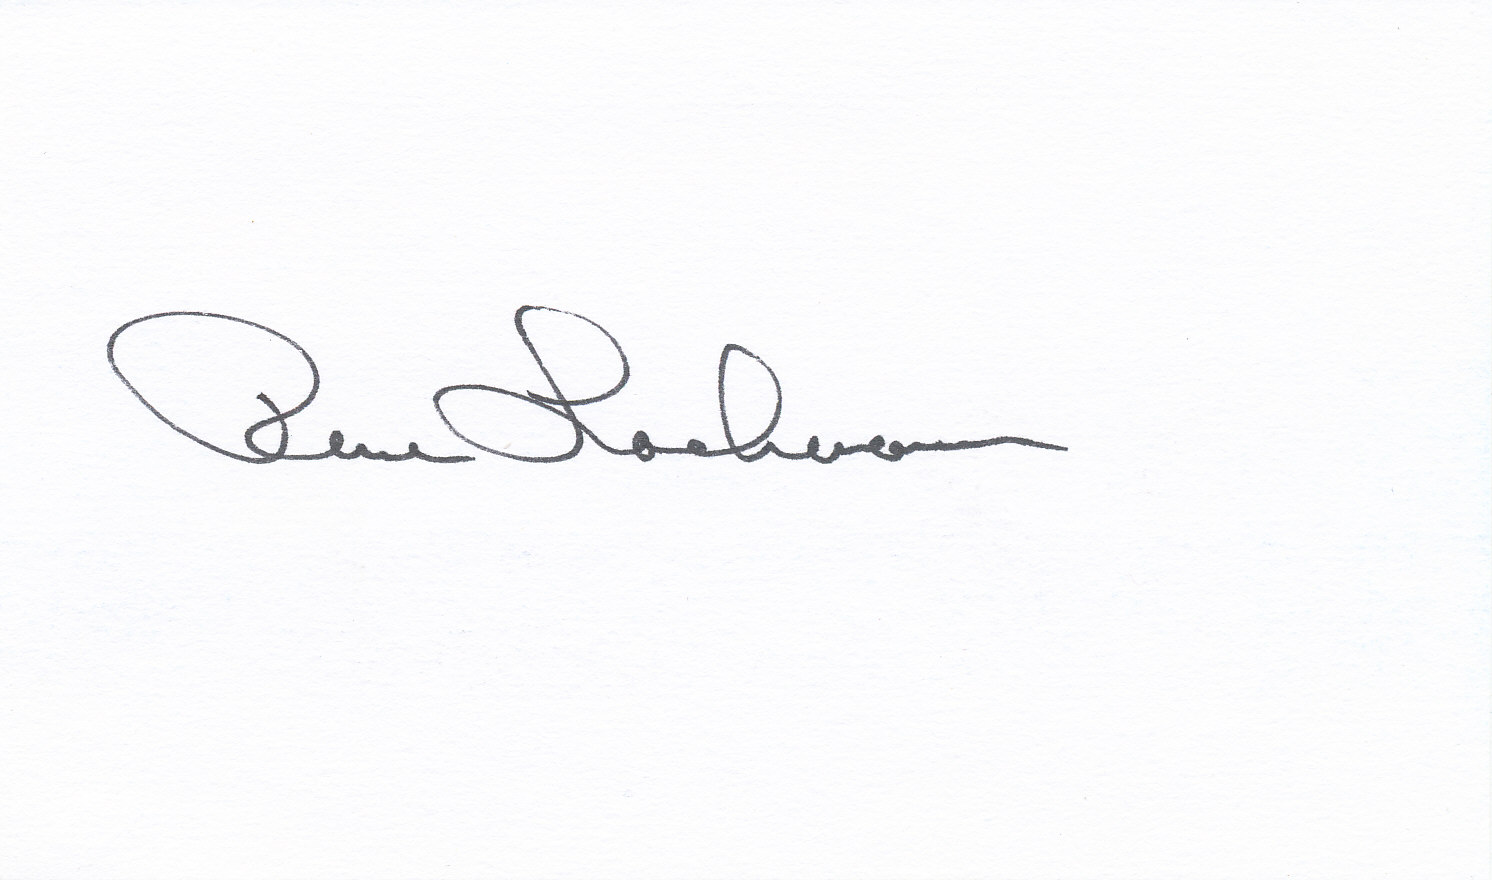 Rene Lachemann